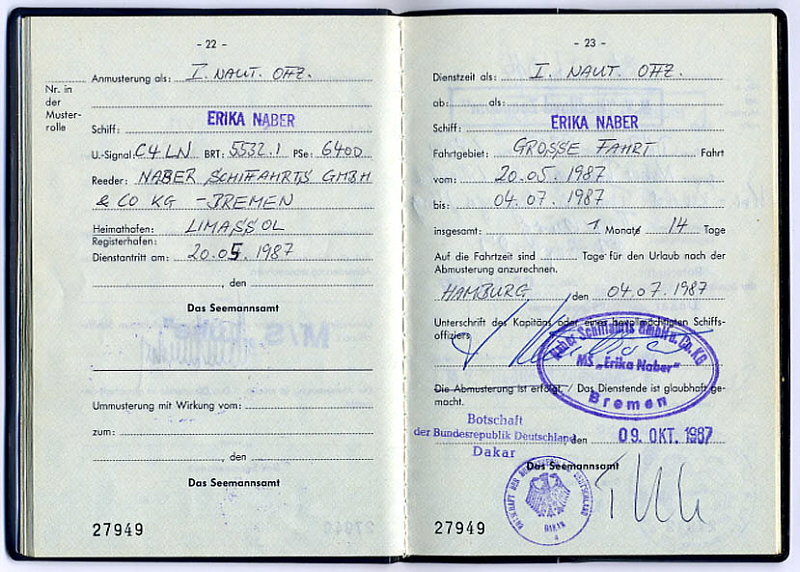 - 22 -
Anmusterung als: I. NAUT. OFFZ.
Nr. in
der
Muster-
rolle
Schiff: ERIKA NABER
U.-Signal: C4LN BRT: 5532.1 PSe: 6400
Reeder: NABER SCHIFFAHRTS GMBH
& CO KG - BREMEN
Heimathafen: LIMASSOL
Registerhafen:
Dienstantritt am: 20.05.1987
, den
Das Seemannsamt
Ummusterung mit Wirkung vom:
zum:
, den
Das Seemannsamt
27949
- 23 -
Dienstzeit als: I. NAUT. OFFZ.
ab: als:
Schiff: ERIKA NABER
Fahrtgebiet: GROSSE FAHRT Fahrt
vom: 20.05.1987
bis: 04.07.1987
insgesamt: 1 Monate 14 Tage
Auf die Fahrtzeit sind Tage für den Urlaub nach der
Abmusterung anzurechnen.
HAMBURG, den 04.07.1987
Unterschrift des Kapitäns oder eines bevollmächtigten Schiffs-
offiziers
Naber Schiffahrts GmbH u. Co. KG
MS „Erika Naber"
Bremen
Die Abmusterung ist erfolgt. / Das Dienstende ist glaubhaft ge-
macht.
Botschaft
der Bundesrepublik Deutschland, den 09. OKT. 1987
Dakar
Das Seemannsamt
BOTSCHAFT DER BUNDESREPUBLIK DEUTSCHLAND
DAKAR
4
27949